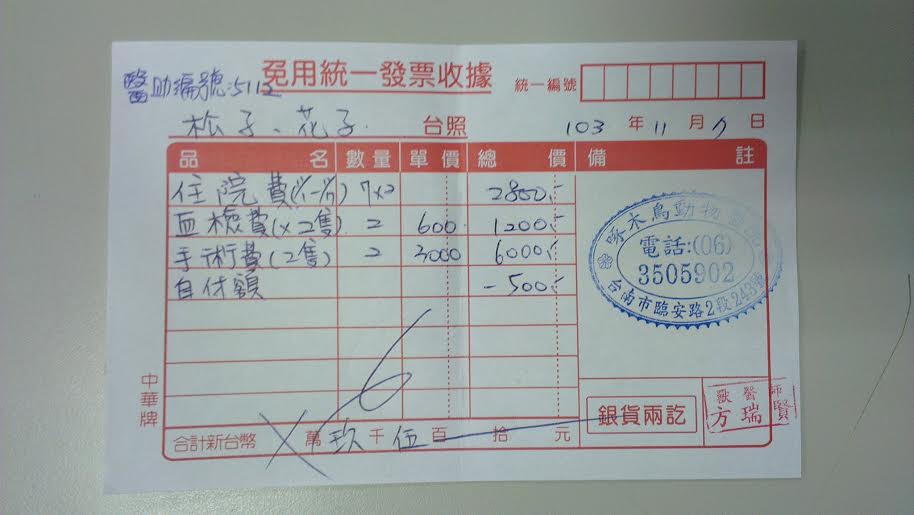 醫助編號:5112
免用統一發票收據
統一編號
松子、花子. 台照
103 年 11 月 7 日
品名 數量 單價 總價 備註
住院費(1/1-1/7) 7x2 2800.-
血檢費(x2隻) 2 600. 1200.-
手術費(2隻) 2 3000 6000.-
自付額 -500.-
啄木鳥動物
電話:(06)
3505902
台南市臨安路2段243號
中華牌
合計新台幣 X 萬 玖 千 伍 百 拾 元
銀貨兩訖
獸醫師
方瑞賢